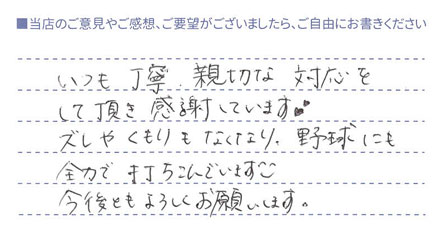 ■当店のご意見やご感想、ご要望がございましたら、ご自由にお書きください
いつも丁寧、親切な対応を
して頂き感謝しています
ズレやくもりもなくなり、野球にも
全力で打ちこんでいます
今後ともよろしくお願いします。